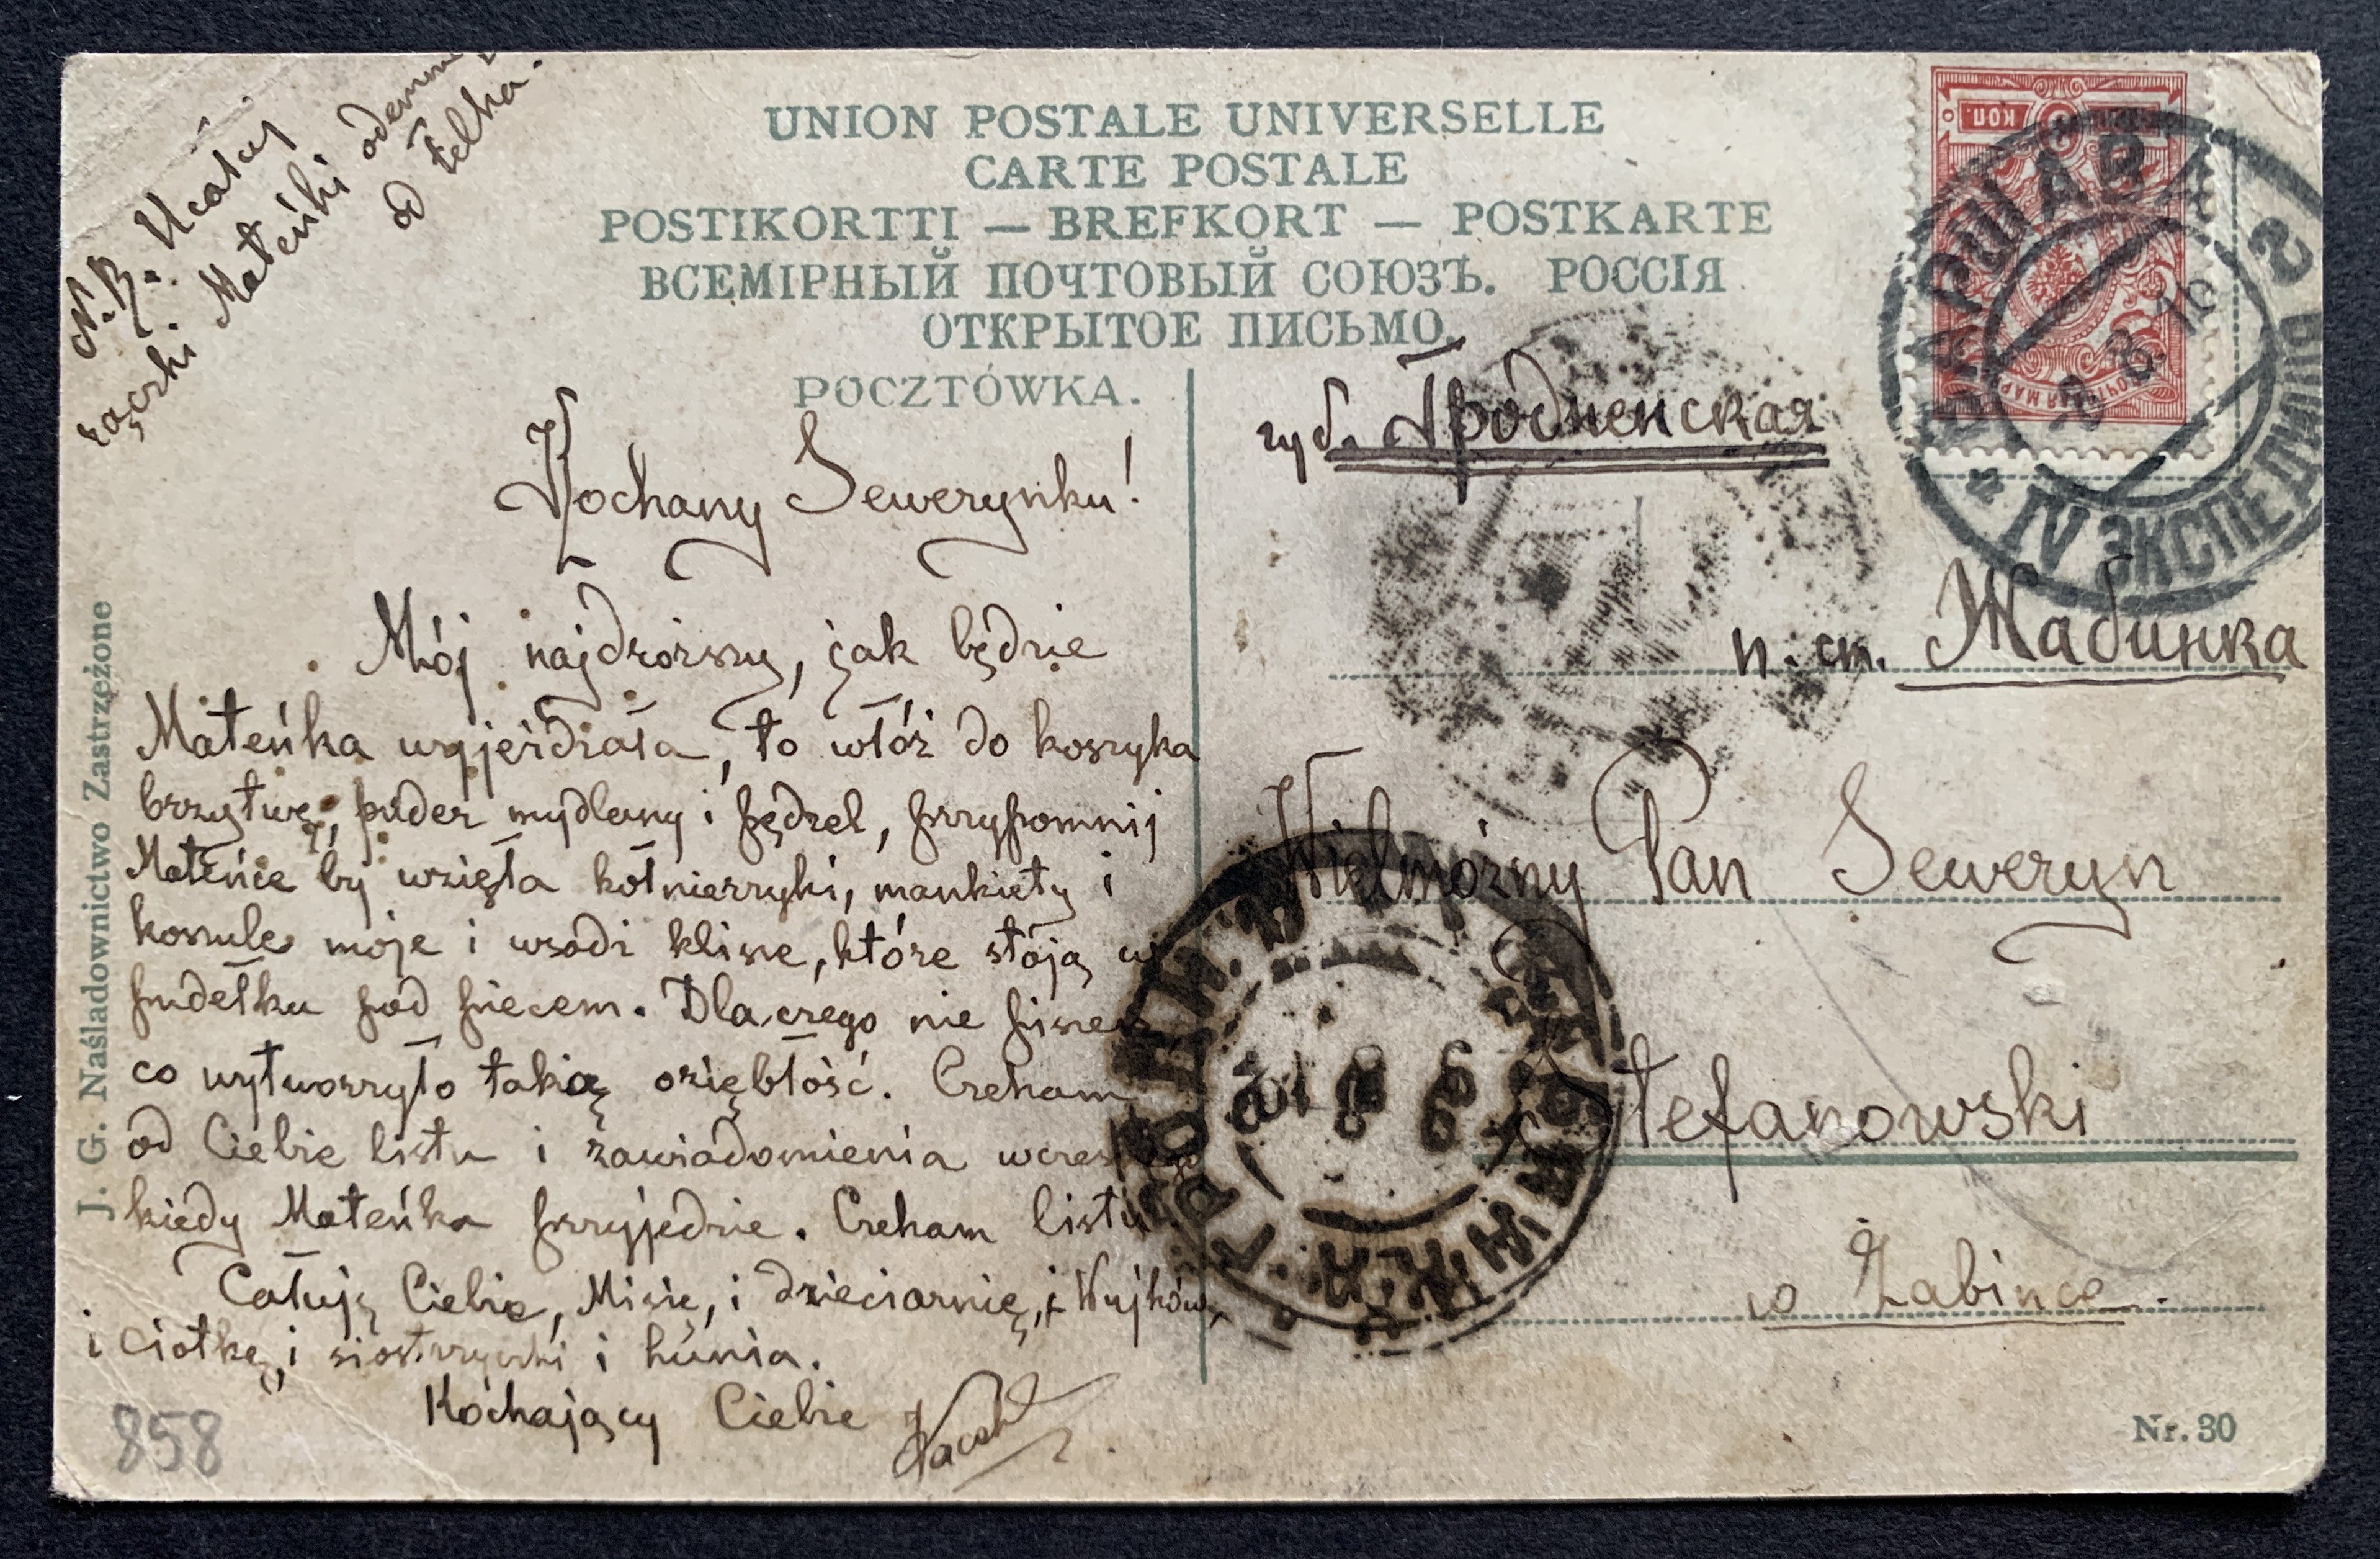 N.B. Ucałuj
rączki Mateńki odemnie i
od Felka.
UNION POSTALE UNIVERSELLE
CARTE POSTALE
POSTIKORTTI — BREFKORT — POSTKARTE
ВСЕМІРНЫЙ ПОЧТОВЫЙ СОЮЗЪ. РОССІЯ
ОТКРЫТОЕ ПИСЬМО.
POCZTÓWKA.
Kochany Sewerynku!
Mój najdroższy, jak będzie
Mateńka wyjeżdżała, to włóż do koszyka
brzytwę, puder mydlany i pędzel, przypomnij
Mateńce by wzięła kołnierzyki, mankiety i
koszule moje i wsadź klisze, które stoją w
pudełku pod piecem. Dlaczego nie piszesz
co wytworzyło taką oziębłość. Czekam
od Ciebie listu i zawiadomienia wcześniej
kiedy Mateńka przyjedzie. Czekam listu.
Całuję Ciebie, Misię, i dzieciarnię, i Wujków,
i Ciotkę, i siostrzyczki i Lunia.
Kochający Ciebie Wacek
губ. Гродненская
п. ст. Жабинка
Wielmożny Pan Seweryn
Stefanowski
w Żabince.
J. G. Naśladownictwo Zastrzeżone
Nr. 30
858
КОП.
ПОЧТОВАЯ МАРКА
ВАРШАВА 2
8.8.10
IV ЭКСПЕДИЦІЯ
ЖАБИНКА
ГРОДН.